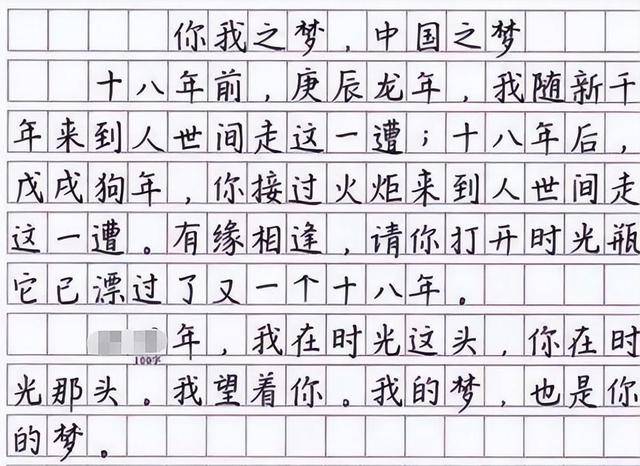 你我之梦，中国之梦
十八年前，庚辰龙年，我随新千
年来到人世间走这一遭；十八年后，
戊戌狗年，你接过火炬来到人世间走
这一遭。有缘相逢，请你打开时光瓶
它已漂过了又一个十八年。
年，我在时光这头，你在时
100字
光那头。我望着你。我的梦，也是你
的梦。